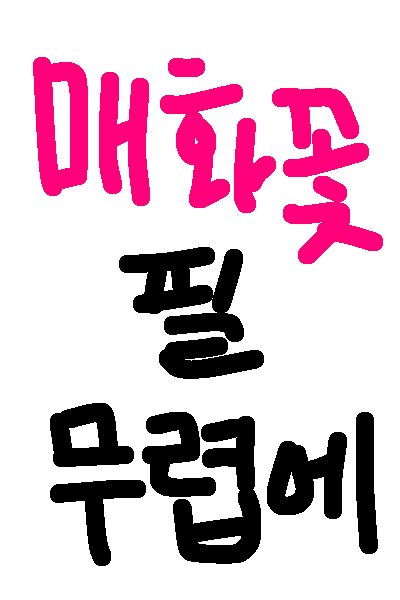 매화꽃
필
무렵에